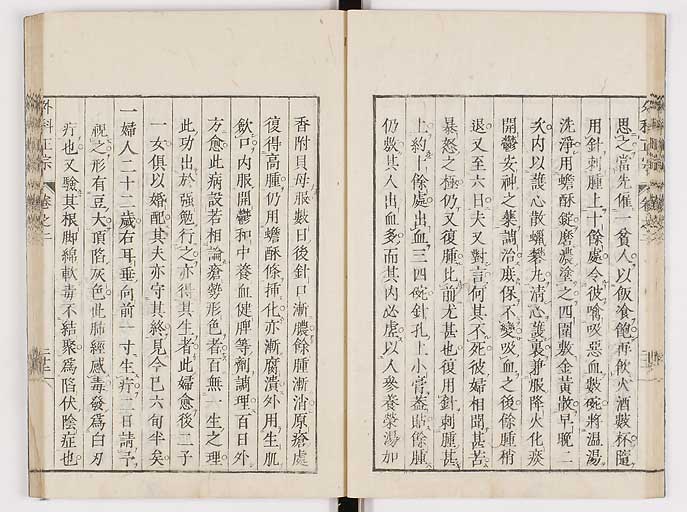 思之當先僱一貧人以飯飧飽再飲火酒數杯隨
用針刺腫上十餘處令彼噙吸惡血數碗將溫湯
洗淨用蟾酥錠磨濃塗之四圍敷金黃散早晚二
次內以護心散蠟礬丸清心護裏兼服降火化痰
開鬱安神之藥調治庶保不變吸血之後餘腫稍
退又至六日夫又對言何其不死彼婦相聞甚苦
暴怒之極仍又復腫比前尤甚也復用針刺腫甚
上約十餘處出血三四碗針孔上小膏蓋貼餘腫
仍敷其人出血多而其內必虛以人參養榮湯加
外科正宗
卷之二
香附貝母服數日後針口漸膿餘腫漸消原瘡處
復得高腫仍用蟾酥條插化亦漸腐潰外用生肌
斂口內服開鬱和中養血健脾等劑調理百日外
方愈此病設若相論瘡勢形色者百無一生之理
此功出於強勉行之亦得其生者此婦愈後二子
一女俱以婚配其夫亦守其終見今已六旬半矣
一婦人二十二歲右耳垂向前一寸生疔三日請予
視之形有豆大頂陷灰色此肺經感毒發爲白刃
疔也又驗其根腳綿軟毒不結聚爲陷伏陰症也
外科正宗